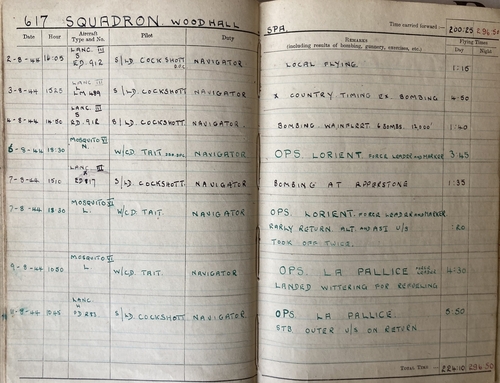 617 SQUADRON. WOODHALL SPA.
Time carried forward:— 200:25 296:50
Date Hour Aircraft Type and No. Pilot Duty REMARKS (including results of bombing, gunnery, exercises, etc.) Flying Times Day Night
LANC. III
2-8-44 16:05 S/LD. COCKSHOTT NAVIGATOR LOCAL FLYING. 1:15
LANC III
3-8-44 1525 LM 489 S/LD. COCKSHOTT. NAVIGATOR X COUNTRY TIMING EX. BOMBING
LANC. III
S
4-8-44 S/LD. COCKSHOTT NAVIGATOR. BOMBING. WAINFLEET. 6 BOMBS. 1:40
MOSQUITO VI
N.
6-8-44 18:30 W/CD. TAIT NAVIGATOR OPS. LORIENT. FORCE LEADER AND MARKER 3:45
LANC. III
7-8-44 1510 S/LD. COCKSHOTT. NAVIGATOR BOMBING AT 1:35
MOSQUITO VI
7-8-44 18:30 L. W/CD. TAIT. NAVIGATOR OPS. LORIENT. FORCE LEADER AND MARKER.
EARLY RETURN. ALT. AND ASI U/S :20
TOOK OFF TWICE.
MOSQUITO VI
9-8-44 1050 L. W/CD. TAIT. NAVIGATOR. OPS. LA PALLICE 4:30
LANDED WITTERING FOR REFUELING
LANC.
S/LD. COCKSHOTT. NAVIGATOR OPS. LA PALLICE. 5:50
STB. OUTER U/S ON RETURN
TOTAL TIME